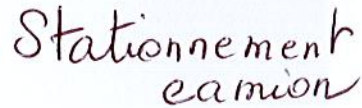 Stationnement
camion